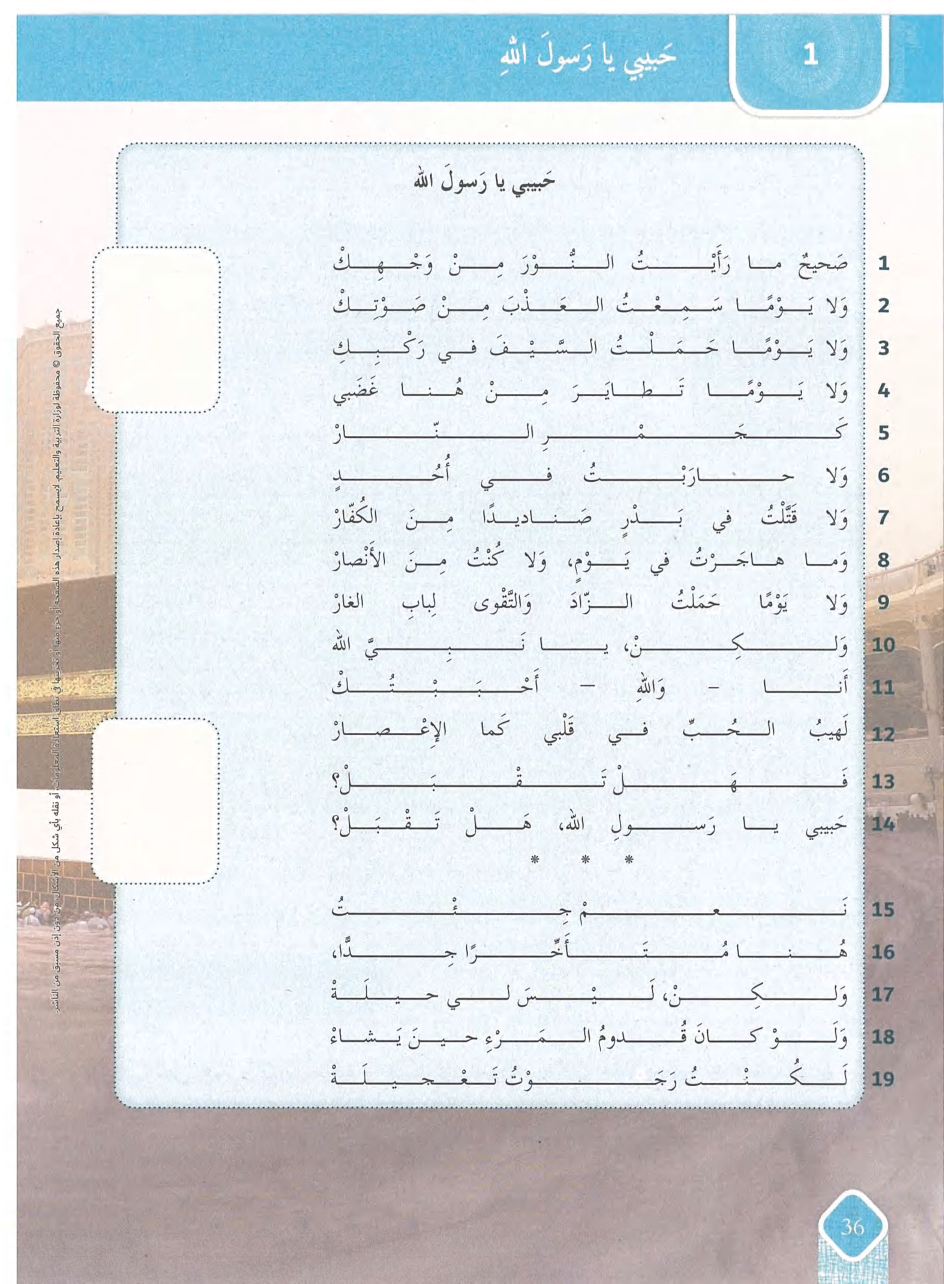 1
حَبيبي يا رَسولَ اللهِ
حَبيبي يا رَسولَ الله
1 صَحيحٌ ما رَأَيْتُ النُّوْرَ مِنْ وَجْهِكْ
2 وَلا يَوْمًا سَمِعْتُ العَذْبَ مِنْ صَوْتِكْ
3 وَلا يَوْمًا حَمَلْتُ السَّيْفَ في رَكْبِكِ
4 وَلا يَوْمًا تَطايَرَ مِنْ هُنا غَضَبي
5 كَجَمْرِ النّارْ
6 وَلا حارَبْتُ في أُحُدٍ
7 وَلا قَتَّلْتُ في بَدْرٍ صَناديدًا مِنَ الكُفّارْ
8 وَما هاجَرْتُ في يَوْمٍ، وَلا كُنْتُ مِنَ الأَنْصارْ
9 وَلا يَوْمًا حَمَلْتُ الزّادَ وَالتَّقْوى لِبابِ الغارْ
10 وَلكِنْ، يا نَبِيَّ الله
11 أَنا – وَاللهِ – أَحْبَبْتُكْ
12 لَهيبُ الحُبِّ في قَلْبي كَما الإِعْصارْ
13 فَهَلْ تَقْبَلْ؟
14 حَبيبي يا رَسولِ الله، هَلْ تَقْبَلْ؟
* * *
15 نَعمْ جِئْتُ
16 هُنا مُتَأَخِّرًا جِدًّا،
17 وَلكِنْ، لَيْسَ لي حيلَةْ
18 وَلَوْ كانَ قُدومُ المَرْءِ حينَ يَشاءْ
19 لَكُنْتُ رَجَوْتُ تَعْجيلَةْ
جميع الحقوق © محفوظة لوزارة التربية والتعليم. لايسمح بإعادة إصدار هذه الصفحة أو جزء منها أو تخزينها في نطاق استعادة المعلومات، أو نقله بأي شكل من الأشكال من دون إذن مسبق من الناشر
36